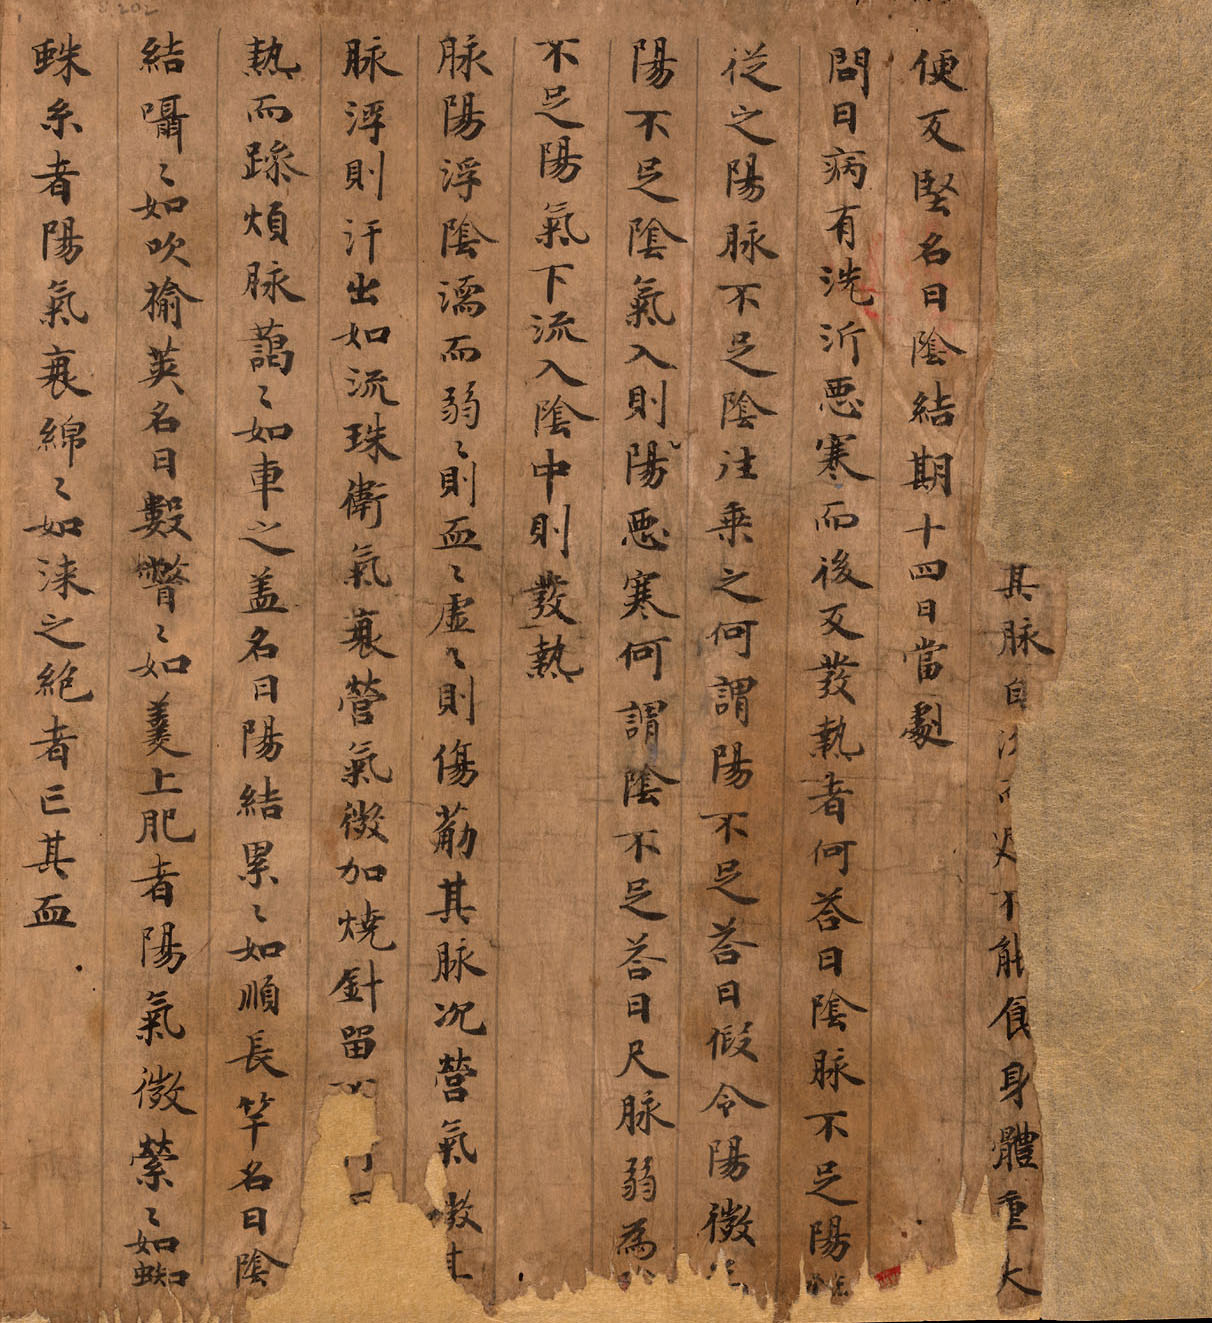 其脉自沉而遲不能食身體重大
便反堅名曰陰結期十四日當劇
問曰病有洗沂惡寒而後反發熱者何荅曰陰脉不足陽
從之陽脉不足陰往乗之何謂陽不足荅曰假令陽微
陽不足陰氣入則陽惡寒何謂陰不足荅曰尺脉弱為
不足陽氣下流入陰中則發熱
脉陽浮陰濡而弱〻則血〻虛〻則傷筋其脉況營氣微
脉浮則汗出如流珠衛氣衰營氣微加燒針留
熱而躁煩脉藹〻如車之盖名曰陽結累〻如順長竿名曰陰
結囁〻如吹榆莢名曰數瞥〻如羹上肥者陽氣微縈〻如蜘
蛛糸者陽氣衰綿〻如涑之絶者亡其血